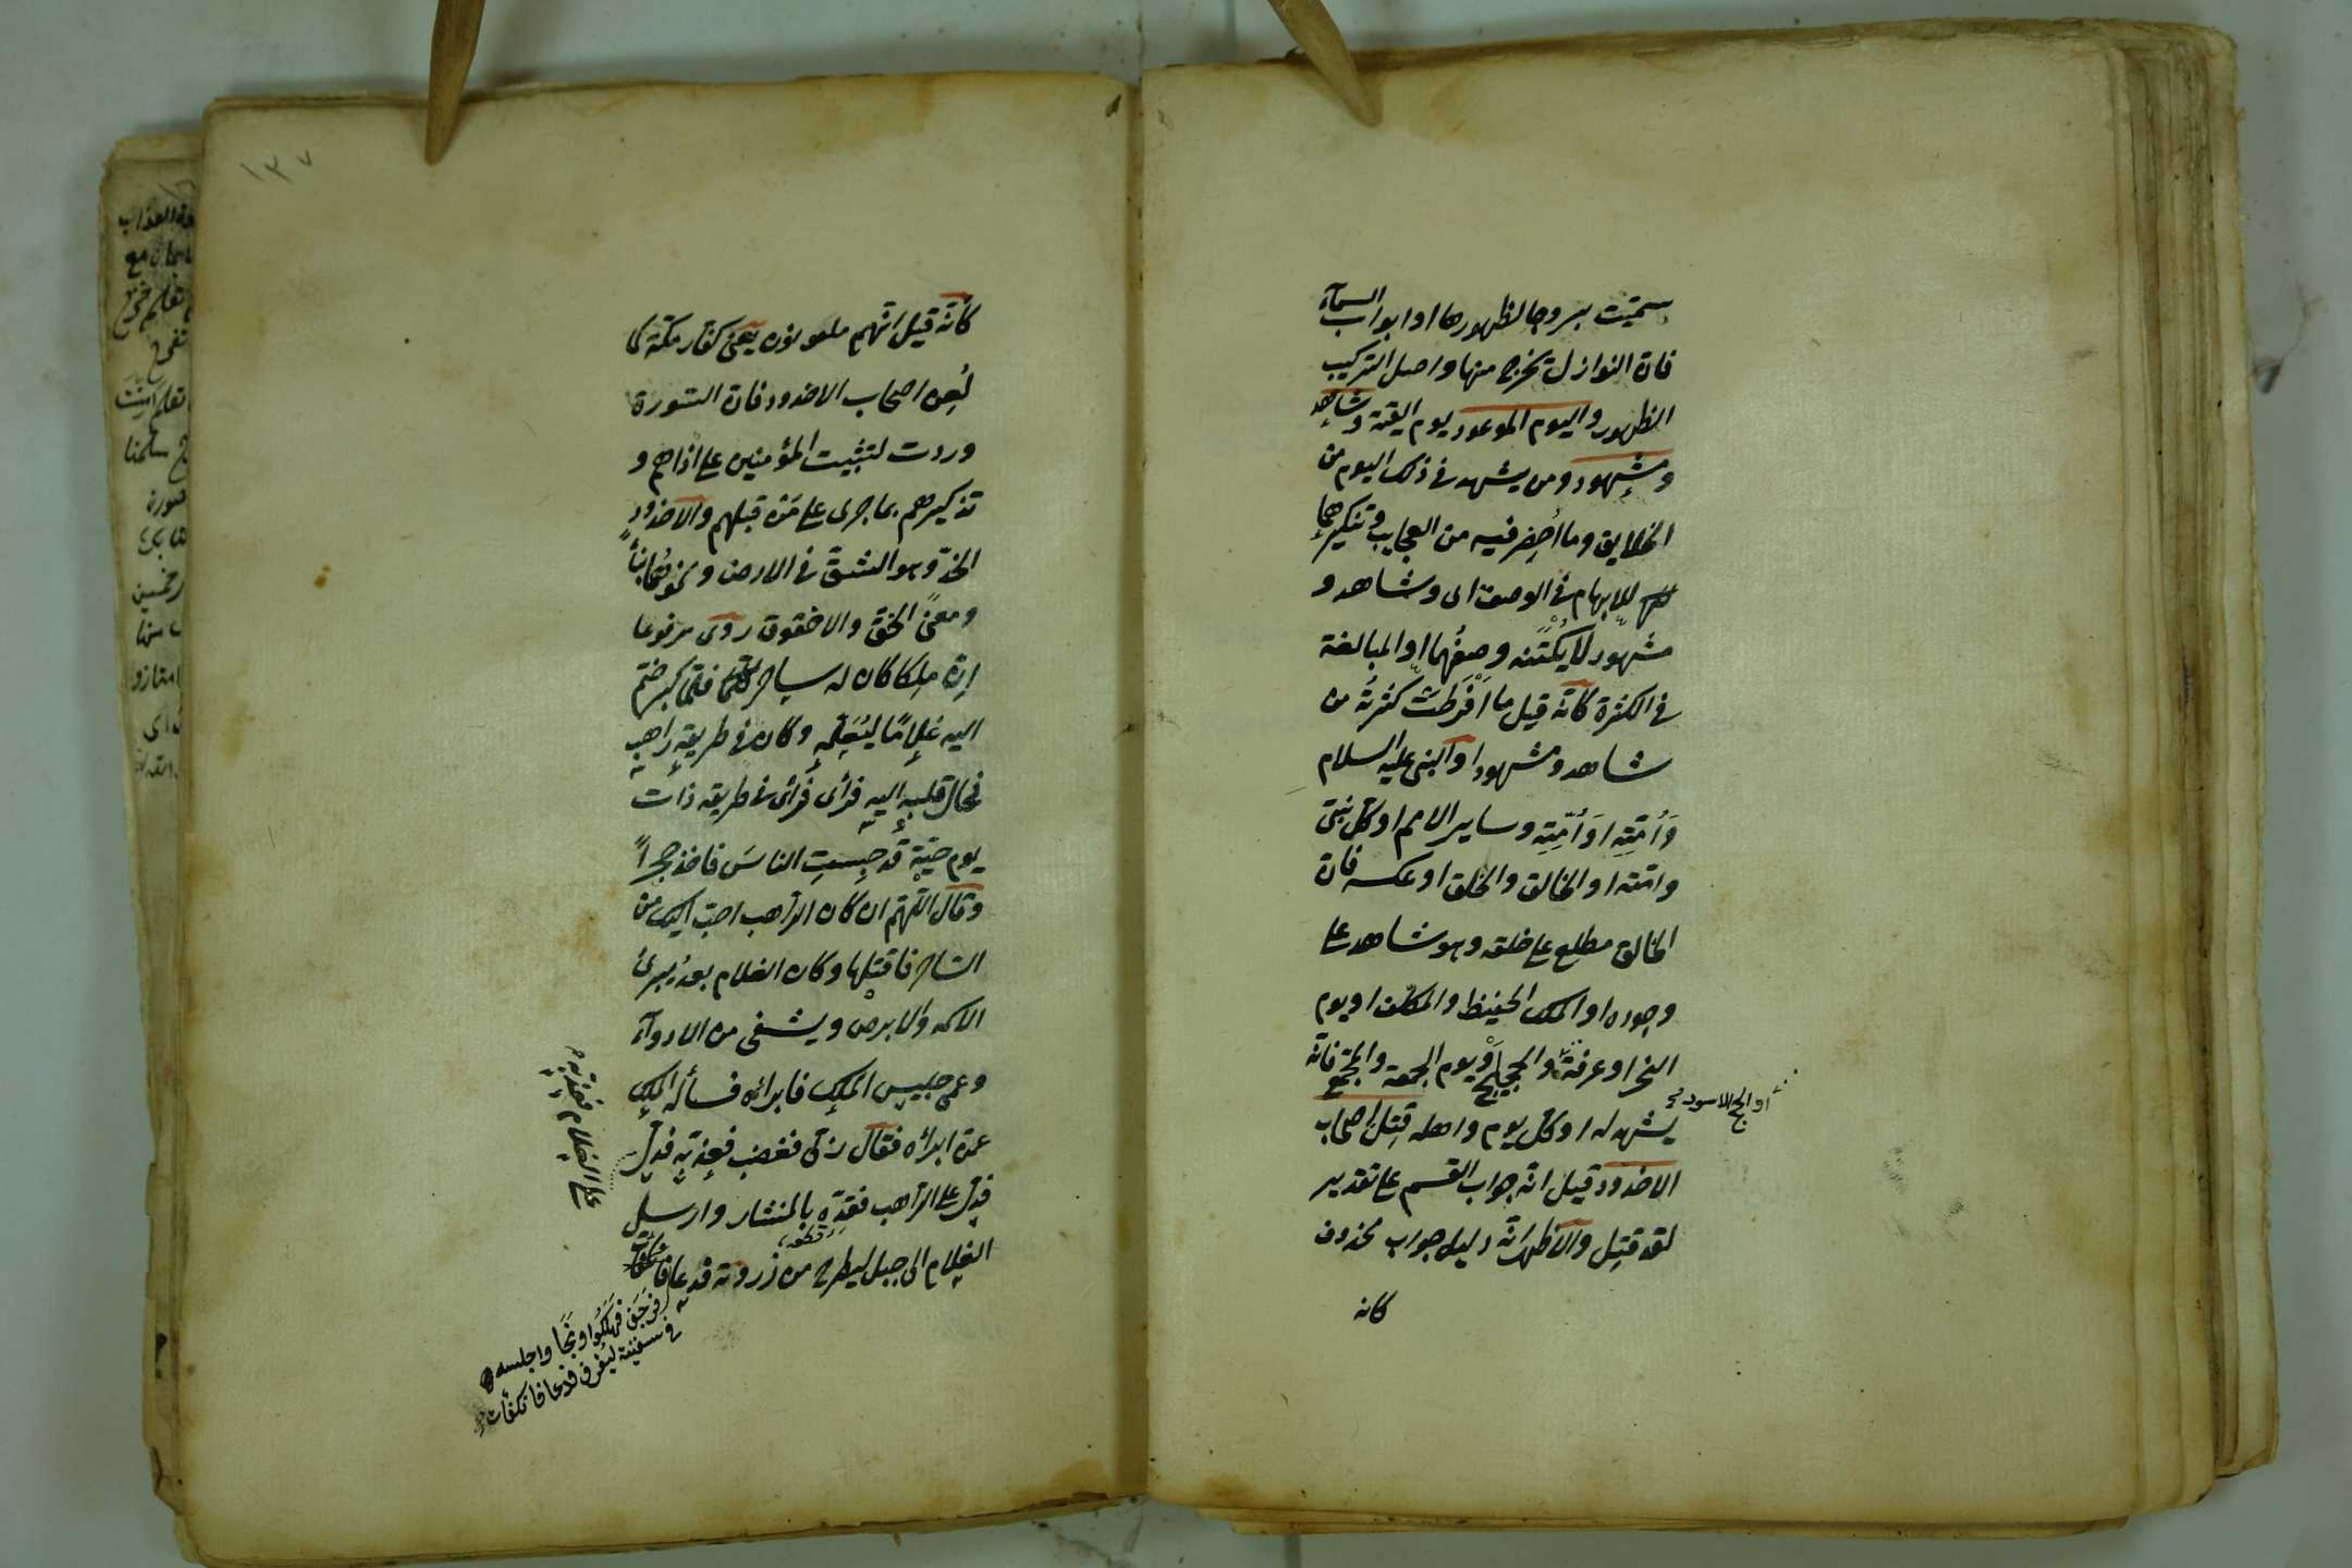 سميت بروجا لظهورها او ابواب السمآء
فان النوازل تخرج منها واصل التركيب
الظهور واليوم الموعود يوم القيمة وشاهد
ومشهود ومن يشهد فى ذلك اليوم من
الخلايق وما أحضر فيه من العجايب وتنكيرهما
للابهام فى الوصف اى وشاهد و
مشهود لا يكتنه وصفهما او المبالغة
فى الكثرة كانه قيل ما أفرطت كثرته من
شاهد ومشهود او النبى عليه السلام
وأمته او أمته وساير الامم او كل نبى
وامته او الخالق والخلق او عكسه فان
الخالق مطلع على خلقه وهو شاهد على
وجوده او الملك الحفيظ والمكلف او يوم
النحر او عرفة والحجيج او يوم الجمعة والمجمع فانه
او الحج الاسود
يشهد له او كل يوم واهله قتل اصحاب
الاخدود قيل انه جواب القسم على تقدير
لقد قتل والاظهر انه دليل جواب محذوف
كانه
١٣٧
كانه قيل انهم ملعونون يعنى كفار مكة كما
لعن اصحاب الاخدود فان السورة
وردت لتثبيت المؤمنين على اذاهم و
تذكيرهم بما جرى على من قبلهم والاخدود
الخد وهو الشق فى الارض ونحوهما بناء
ومعنى الخق والاخقوق روى مرفوعا
ان ملكا كان له ساحر فلما كبر ضم
اليه غلاما ليعلمه وكان فى طريقه راهب
فمال قلبه اليه فرأى فرأى فى طريقه ذات
يوم حية قد حبست الناس فاخذ حجرا
وقال اللهم ان كان الراهب احب اليك من
الساحر فاقتلها وكان الغلام بعد يبرئ
الاكمه والابرص ويشفى من الادوآء
وعمى جليس الملك فابرأه فسأله الملك
عمن ابرأه فقال ربى فغضب فعذبه فدل
على الغلام فعذبه
فدل على الراهب فقده بالمنشار وارسل
قطعه
الغلام الى جبل ليطرح من ذروته فدعا
فرجف فهلكوا ونجا واجلسه
فى سفينة ليغرق فدعا فانكفأت